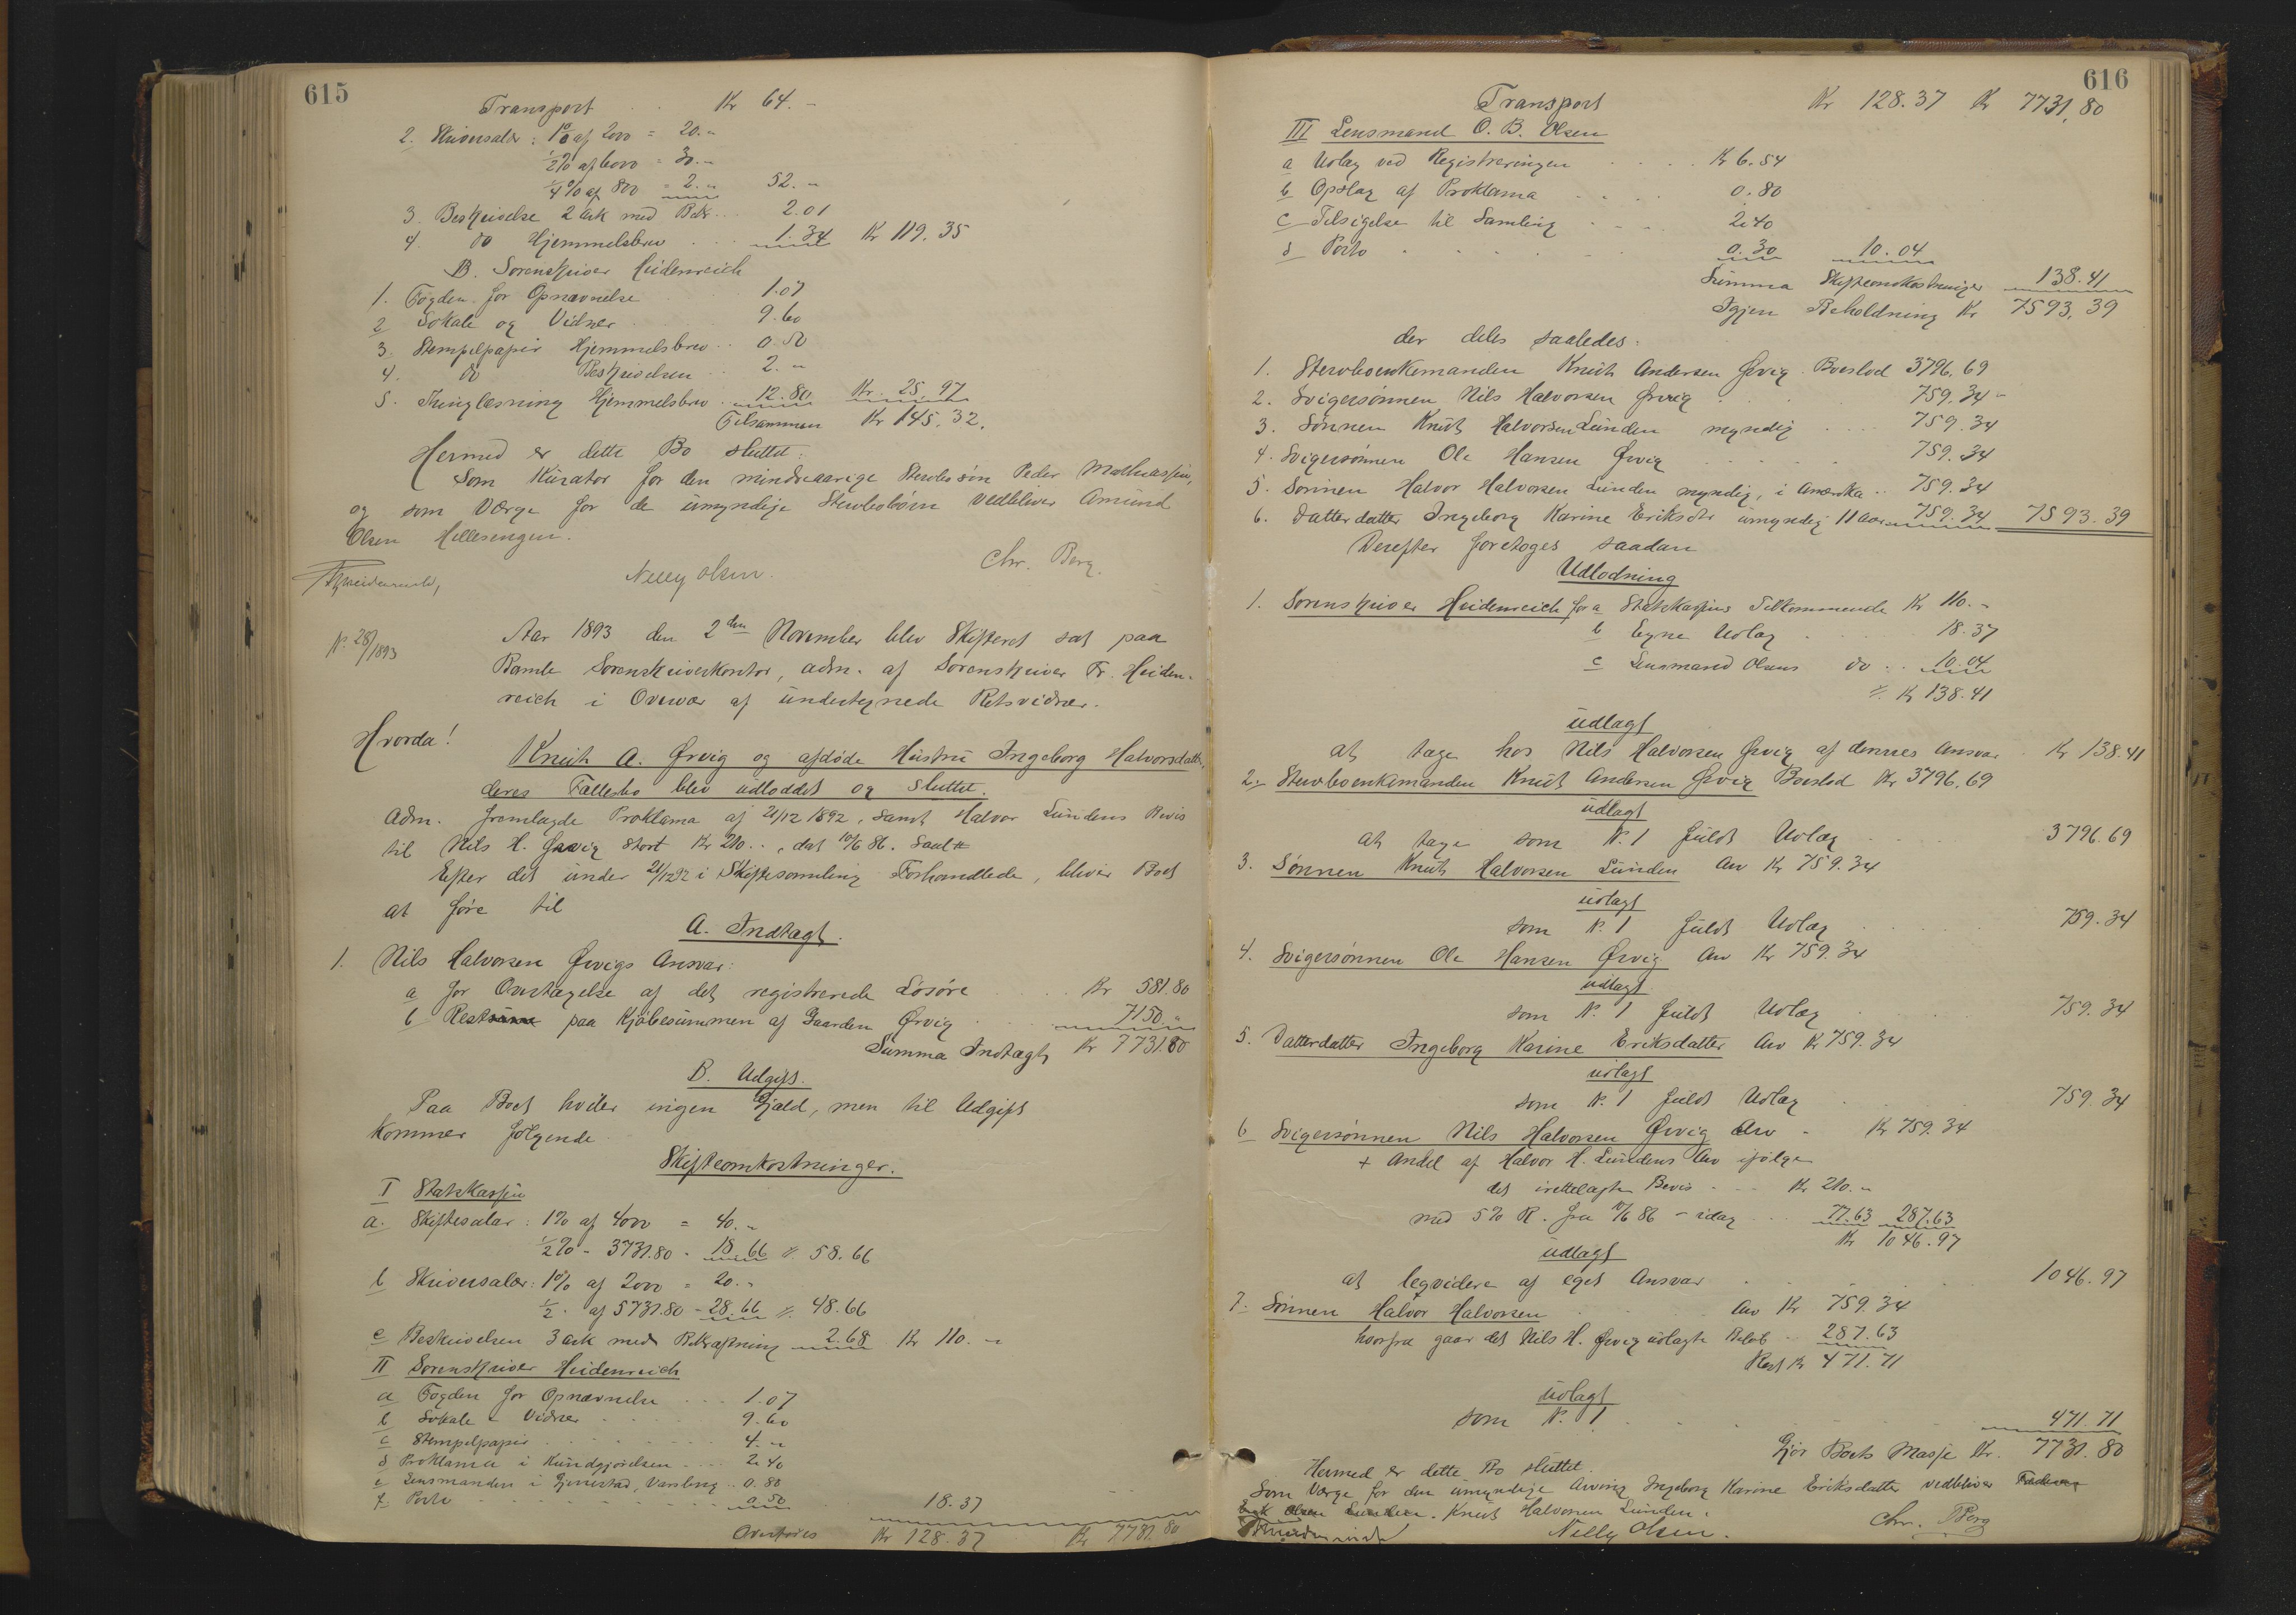 615
Transport . . Kr 64.-
2. Skriversalær: 1% af 2000 = 20."
1/2% af 6000 = 30.-
1/4% af 800 = 2." 52."
3. Beskrivelse 2 Ark med Bekr... 2.01
4. do Hjemmelsbrev . . . 1.34 Kr 119.35
B. Sorenskriver Heidenreich
1. Fogden for Opnævnelse 1.07
2 Lokale og Vidner . . 9.60
3. Stempelpapir Hjemmelsbrev .. 0.50
4. do Beskrivelsen .. 2."
5. Thinglæsning Hjemmelsbrev . 12.80 Kr. 25.97
Tilsammen Kr 145.32.
Hermed er dette Bo sluttet:
Som Kurator for den mindreaarige Stervbosøn Peder Mathiassen,
og som Værge for de umyndige Stervbobørn vedbliver Amund
Olsen Hellesengen.
Nelly Olsen. Chr. Berg.
N. 28/1893
Aar 1893 den 2den November blev Skifteret sat paa
Bamle Sorenskriverkontor, adm. af Sorenskriver Fr. Heiden-
reich i Overvær af undertegnede Retsvidner.
Hvorda!
Knut A. Ørvig og afdøde Hustru Ingeborg Halvorsdatter,
deres Fællesbo blev udloddet og sluttet.
Adm. fremlagde Proklama af 21/12 1892, samt Halvor Lundens Bevis
til Nils H. Ørvig stort Kr 210.., dat 10/6 86. Saal#
Efter det under 21/12 92 i Skiftesamling Forhandlede, bliver Boet
at føre til
A. Indtægt.
1. Nils Halvorsen Ørvigs Ansvar:
a for Overtagelse af det registrerede Løsøre . . Kr 581.80
b Rest paa Kjøbesummen af Gaarden Ørvig . . 7150."
Summa Indtægt Kr 7731.80
B. Udgift.
Paa Boet hviler ingen Gjæld, men til Udgift
kommer følgende
Skifteomkostninger.
I Statskassen
a. Skiftesalær: 1% af 4000 = 40."
1/2% - 3731.80 - 18.66 // 58.66
b Skriversalær: 1% af 2000 = 20."
1/2 . af 5731.80 - 28.66 // 48.66
c Beskrivelsen 3 Ark med Bekræftning 2.68 Kr 110.-
II Sorenskriver Heidenreich
a Fogden for Opnævnelse . . . 1.07
b Lokale & Vidner . . . . 9.60
c Stempelpapir . . . . 4."
d Proklama i Kundgjørelsen . . . . 2.40
e Lensmanden i Gjerrestad, Varsling .. 0.80
f Porto . . . . . 0.50 18.37
Overføres Kr 128.37 Kr 7731.80
616
Transport Kr 128.37 Kr 7731.80
III Lensmand O. B. Olsen
a Udlæg ved Registreringen . . . . Kr 6.54
b Opslag af Proklama . . . . 0.80
c Tilsigelse til Samling . . . . 2.40
d Porto . . . . . . 0.30 10.04
Summa Skifteomkostninger 138.41
Igjen Beholdning Kr 7593.39
der deles saaledes:
1. Stervboenkemanden Knut Andersen Ørvig Boeslod 3796.69
2. Svigersønnen Nils Halvorsen Ørvig . . 759.34
3. Sønnen Knut Halvorsen Lunden myndig . . . . 759.34
4. Svigersønnen Ole Hansen Ørvig . . . . 759.34
5. Sønnen Halvor Halvorsen Lunden myndig, i Amerika .. 759.34
6. Datterdatter Ingeborg Karine Eriksdtr umyndig 11 aar 759.34 7593.39
Derefter foretoges saadan
Udlodning
1. Sorenskriver Heidenreich for a Statskassens Tilkommende Kr 110.-
b Egne Udlæg . . . . 18.37
c Lensmand Olsens do .. 10.04
// Kr 138.41
udlagt
at tage hos Nils Halvorsen Ørvig af dennes Ansvar . Kr 138.41
2. Stervboenkemanden Knut Andersen Ørvig Boeslod Kr 3796.69
udlagt
at tage som N. 1 fuldt Udlæg . . . 3796.69
3. Sønnen Knut Halvorsen Lunden Arv Kr 759.34
udlagt
som N. 1 fuldt Udlæg . . . . 759.34
4. Svigersønnen Ole Hansen Ørvig Arv Kr 759.34
udlagt
som N. 1 fuldt Udlæg . . . 759.34
5. Datterdatter Ingeborg Karine Eriksdatter Arv Kr 759.34
udlagt
som N. 1 fuldt Udlæg . . . 759.34
6 Svigersønnen Nils Halvorsen Ørvig Arv - Kr 759.34
+ Andel af Halvor H. Lundens Arv ifølge
det irettelagte Bevis - . - Kr 210."
med 5% R. fra 10/6 86 - idag . . . 77.63 287.63
Kr 1046.97
udlagt
at leqvidere af eget Ansvar . . . . 1046.97
7. Sønnen Halvor Halvorsen . . Arv Kr 759.34
hvorfra gaar det Nils H. Ørvig udlagte Beløb .. 287.63
Rest Kr 471.71
udlagt
som N. 1 . . . . 471.71
Gjør Boets Masse Kr. 7731.80
Hermed er dette Bo sluttet.
Som Værge for den umyndige Arving Ingeborg Karine Eriksdatter vedbliver
Knut Halvorsen Lunden.
Nelly Olsen. Chr. Berg